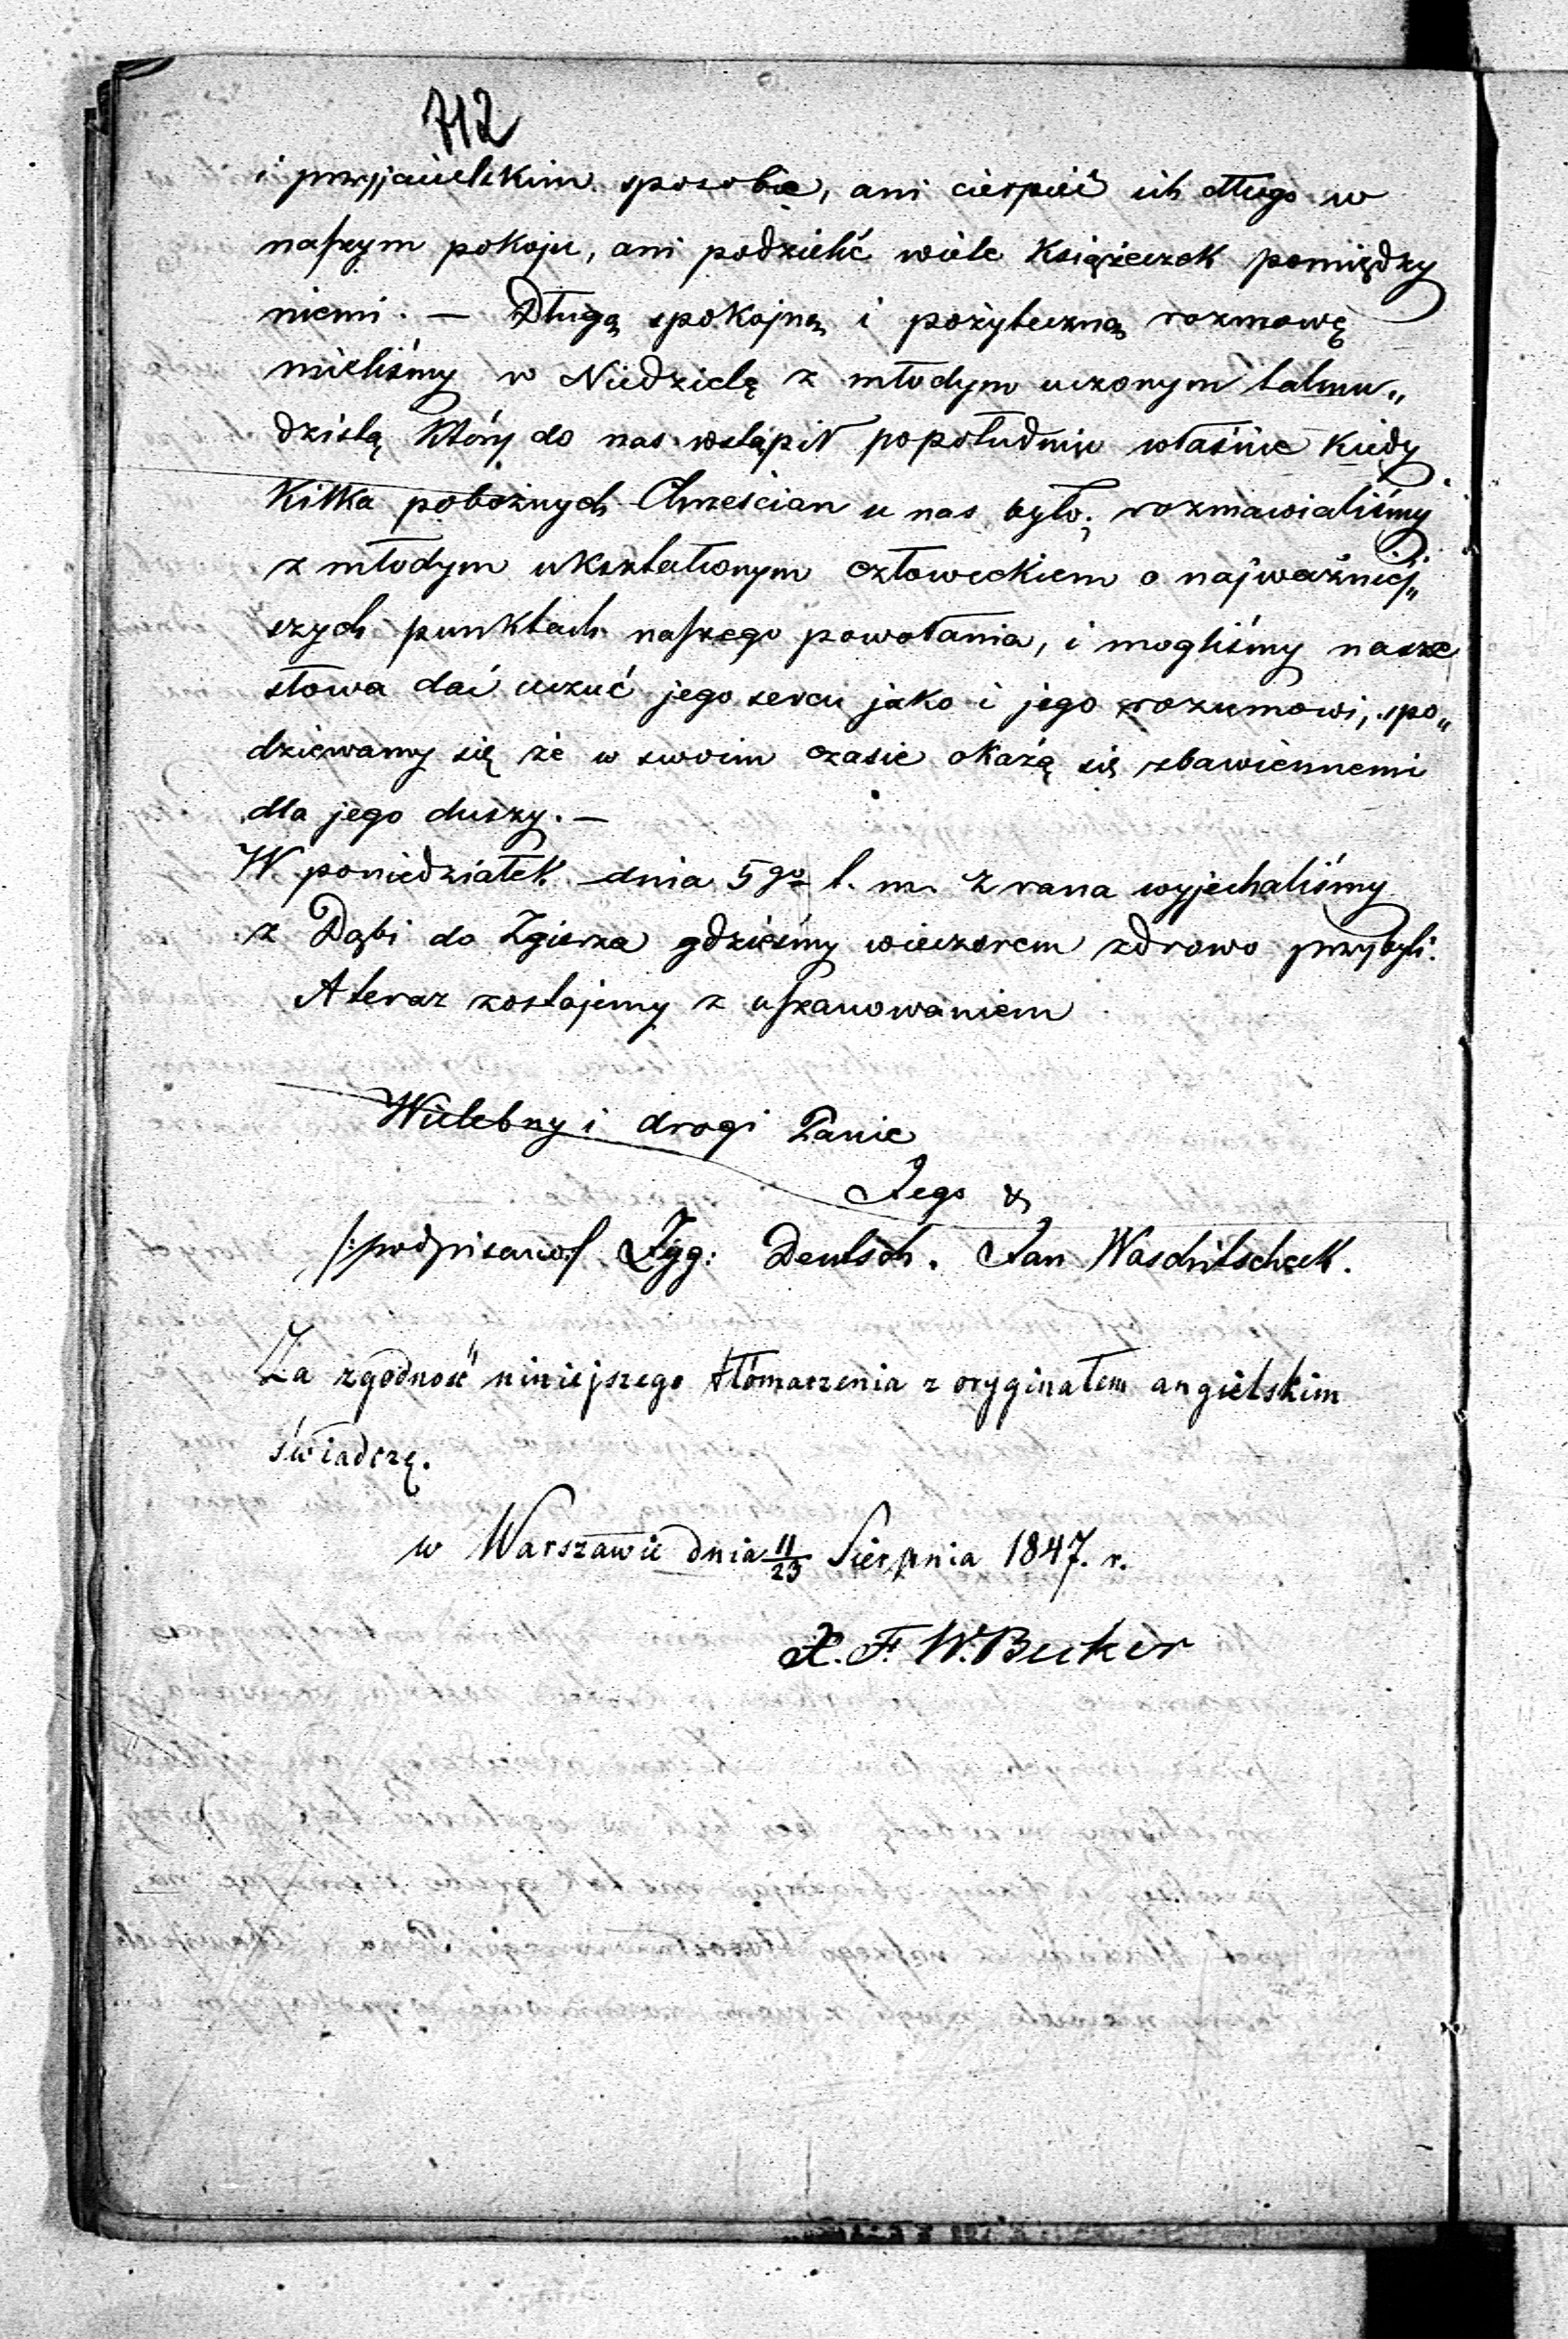 712
i przyjacielskim sposobie, ani cierpieć ich długo w
naszym pokoju, ani podzielić wiele Książeczek pomiędzy
niemi. — Długą spokojną i pożyteczną rozmowę
mieliśmy w Niedzielę z młodym uczonym talmu„
dzistą Który do nas wstąpił popołudniu właśnie Kiedy
Kilka pobożnych Chrześcian u nas było; rozmawialiśmy
z młodym ukształconym człowiekiem o najważniej„
szych punktach naszego powołania, i mogliśmy nasze
słowa dać uczuć jego sercu jako i jego rozumowi, spo„
dziewamy się że w swoim czasie okażą się zbawiennemi
dla jego duszy. —
W poniedziałek dnia 5go t. m. z rana wyjechaliśmy
z Dąbi do Zgierza gdzieśmy wieczorem zdrowo przybyli.
A teraz zostajemy z uszanowaniem
Wielebny i drogi Panie
Jego &
/:podpisano/ Zyg: Deutsch. Jan Waschitscheck.
Za zgodność niniejszego tłómaczenia z oryginałem angielskim
świadczę.
w Warszawie dnia 11/23 Sierpnia 1847. r.
X. F. W. Becker